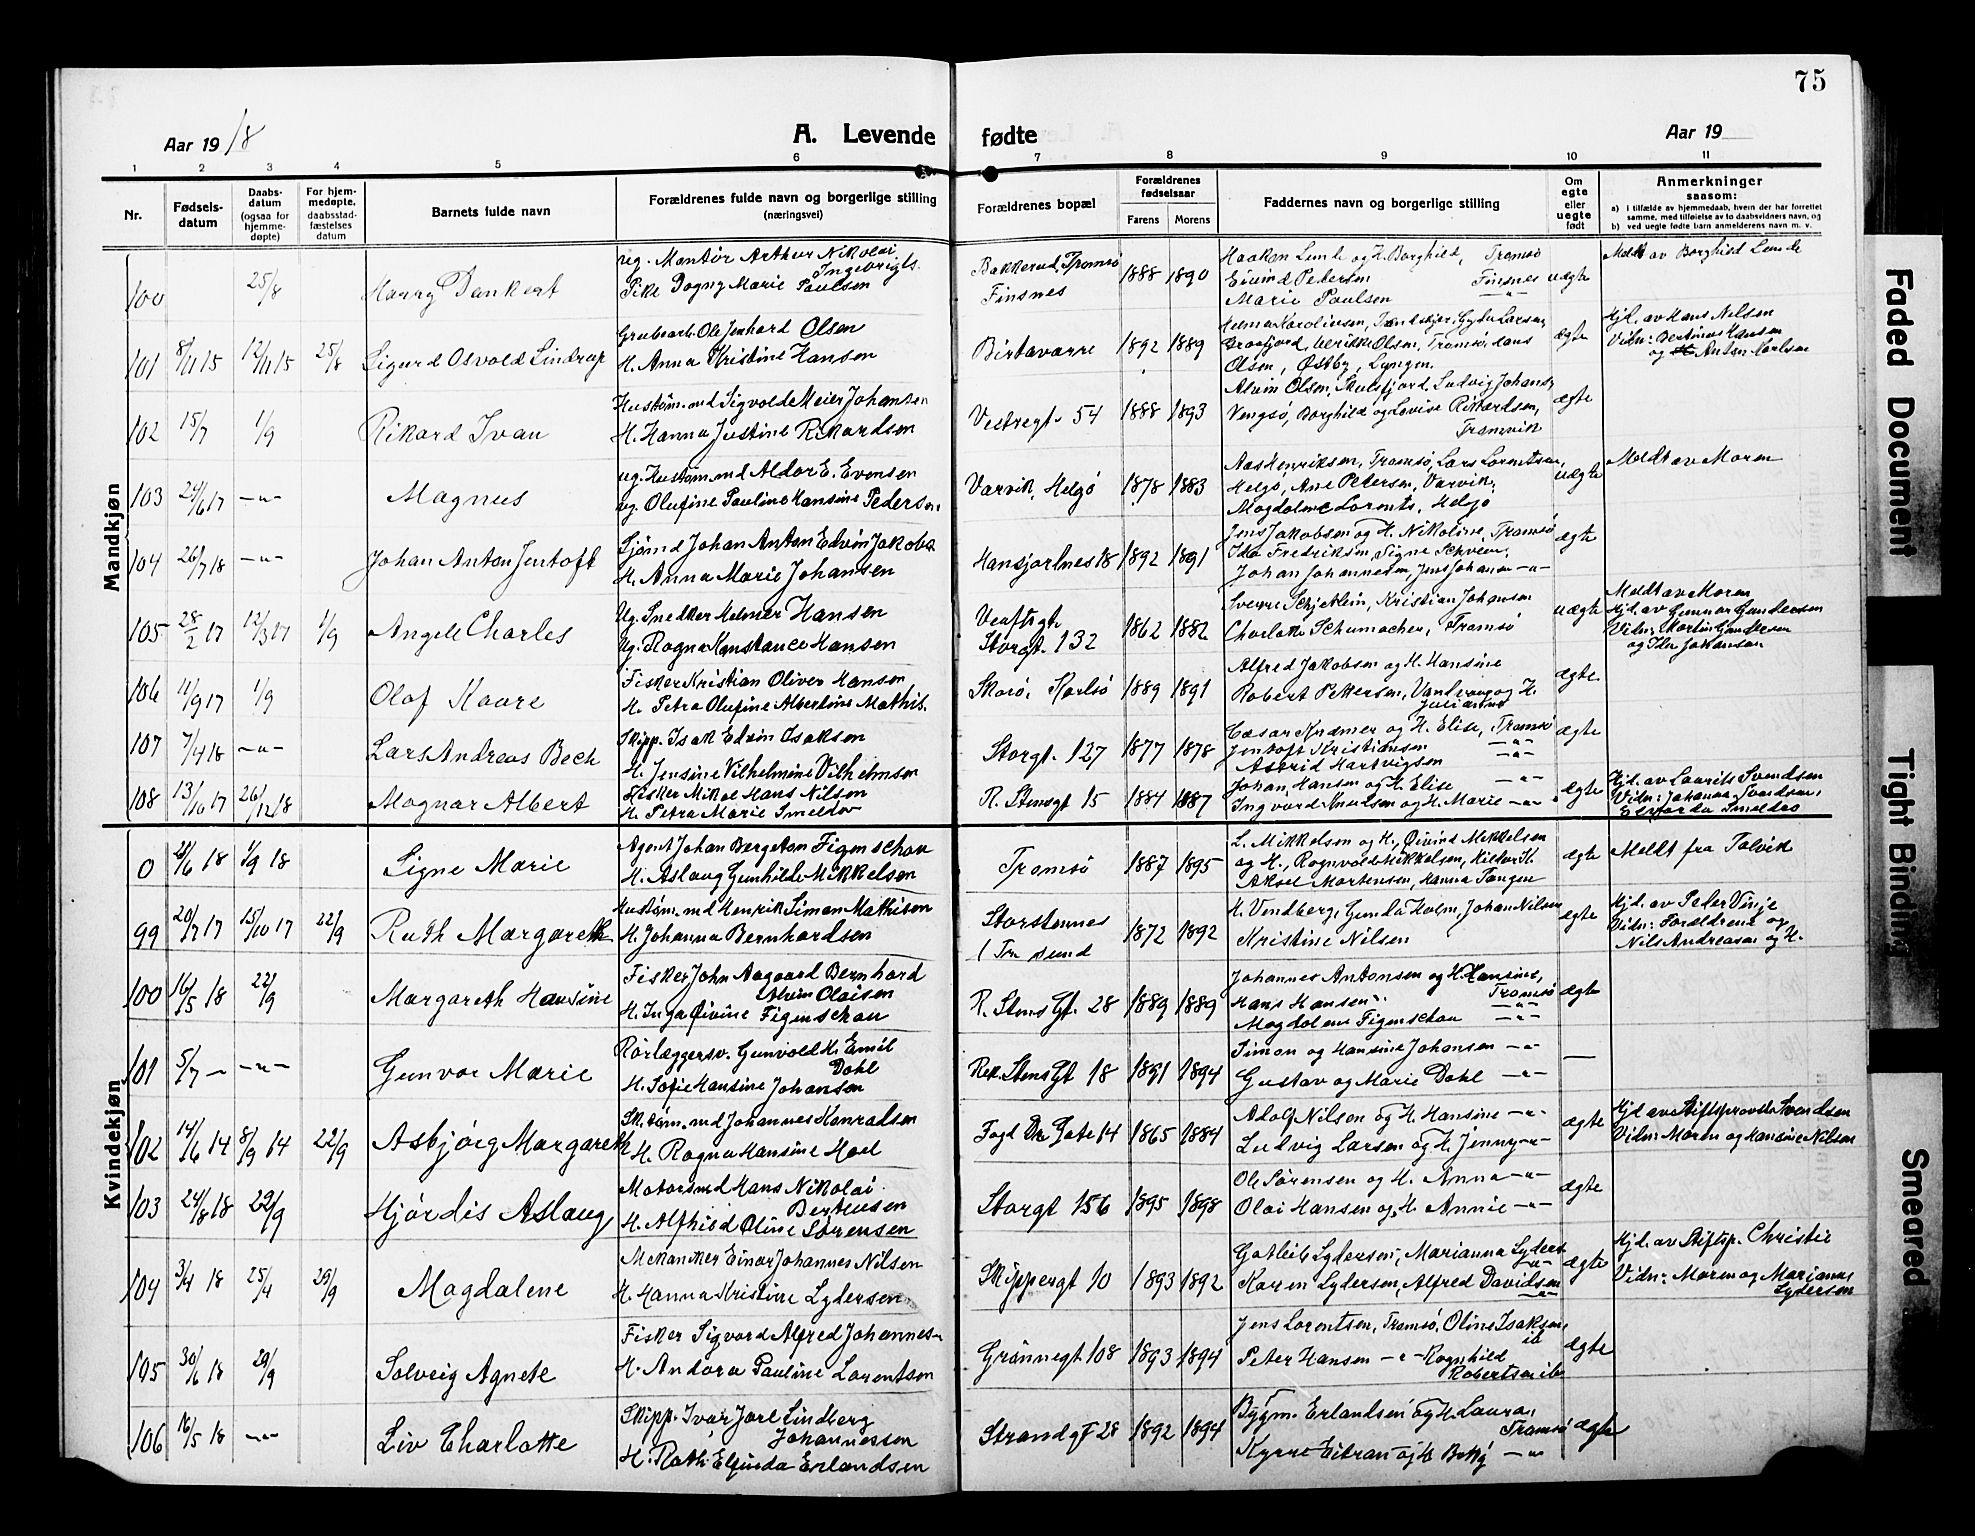 75
Aar 1918
A. Levende
fødte
Aar 19
1 2 3 4 5 6 7 8 9 10 11
Nr.
Fødsels-
datum
Daabs-
datum
(ogsaa for
hjemme-
døpte)
For hjem-
medøpte,
daabsstad-
fæstelses
datum
Barnets fulde navn
Forældrenes fulde navn og borgerlige stilling
(næringsvei)
Forældrenes bopæl
Forældrenes
fødselsaar
Farens
Morens
Faddernes navn og borgerlige stilling
Om
egte
eller
uegte
født
Anmerkninger
saasom:
a) i tilfælde av hjemmedaab, hvem der har forrettet
samme, med tilføielse av to daabsvidners navn, og
b) ved uegte fødte barn anmelderens navn m. v.
Mandkjøn
100 25/8 Harry Dankert
ug. Montør Arthur Nikolai
Ingebrigts.
Pike Dagny Marie Paulsen
Bakkerud, Tromsø
Finsnes
1888 1890
Haakon Lunde og H. Borghild, Tromsø
Eivind Petersen Finsnes
Marie Paulsen —"—
uægte
Meldt av Borghild Lunde
101 8/11 15 12/11 15 25/8 Sigurd Osvold Lindrup
Grubearb. Ole Jenhard Olsen
H. Anna Kristine Hansen
Birtavarre 1892 1889
Olsen, Østby, Lyngen.
ægte
Hjd. av Hans Nilsen
Vidn: Bertinus Hansen
og Anton Karlsen
102 15/7 1/9 Rikard Ivan
Hustøm.md Sigvold Meier Johansen
H. Hanna Justine Rikardsen
Vestregt. 54 1888 1893
Alvin Olsen, Skulsfjord, Ludvig Johans.
Vengsø, Borghild og Lovise Rikardsen,
Tromvik
ægte
103 24/6 17 —"— Magnus
ug. Hustøm.md Aldor E. Evensen
ug. Olufine Pauline Hansine Pedersen.
Varvik, Helgø 1878 1883
Aas Henriksen, Tromsø, Lars Lorentsen,
Helgø, Ane Petersen, Varvik,
Magdalene Lorents, Helgø
uægte
Meldt av Moren
104 26/7 18 —"— Johan Anton Jentoft
Sjømd Johan Anton Edvin Jakobs.
H. Anna Marie Johansen
Hansjordnes 18 1892 1891
Jens Jakobsen og H. Nikoline, Tromsø
Ida Fredriksen, Signe
Johan Johannesen, Jens Johans. —"—
ægte
105 28/2 17 12/3 17 1/9 Angell Charles
Ug. Snedker Helmer Hansen
Ug. Ragna Konstance Hansen
Storgt. 132
1862 1882
Sverre Schjetlein, Kristian Johansen
Charlotte Schumacher, Tromsø
uægte
Meldt av Moren
Hjd. av Gunnar Gundersen
Vidn: Martin Gundersen
og Ida Johansen
106 11/9 17 1/9 Olaf Kaare
Fisker Kristian Oliver Hansen
H. Petra Olufine Albertine Mathis.
Skorø, Karlsø 1889 1891
Alfred Jakobsen og H. Hansine
Robert Pettersen, Vandvaag og H.
Julianna
ægte
107 7/4 18 —"— Lars Andreas Bech
Skipp. Isak Edvin Isaksen
H. Jensine Vilhelmine Vilhelmsen
Storgt. 127 1877 1878
Cæsar Kræmer og H. Elise, Tromsø
Jentoft Kristiansen —"—
Astrid Hartvigsen —"—
ægte
108 13/10 17 26/12 18 Magnar Albert
Fisker Mikal Hans Nilsen
H. Petra Marie Smeldor
R. Stensgt 15 1884 1887
Johan Hansen og H. Elise —"—
Ingvard Knutsen og H. Marie —"—
ægte
Hjd. av Laurits Svendsen
Vidn: Johanna Svendsen,
Edvarda Smeldor
Kvindekjøn
0 21/6 18 1/9 18 Signe Marie
Agent Johan Bergeton Figenschau
H. Aslaug Gunhilde Mikkelsen
Tromsø 1887 1895
L. Mikkelsen og H., Øivind Mikkelsen
og H., Ragnvald Mikkelsen,
Aksel Mortensen, Hanna Tangen
ægte
Meldt fra Talvik
99 20/7 17 15/10 17 22/9 Ruth Margareth
Hustøm.md Henrik Simon Mathisen
H. Johanna Bernhardsen
Storstennes
i Tr. sund
1872 1892
H. Vendberg, Gunda Holm, Johan Nilsen
Kristine Nilsen
ægte
Hjd. av Peder Vinje
Vidn: Forældrene og
Nils Andreasen og H.
100 16/5 18 22/9 Margareth Hansine
Fisker John Aagaard Bernhard
Alvin Olaisen
H. Inga Øivine Figenschau
R. Stens Gt. 28 1889 1889
Johannes Antonsen og H. Hansine,
Hans Hansen Tromsø
Magdalene Figenschau —"—
ægte
101 5/7 — —"— Gunvor Marie
Rørlæggersv. Gunvold H. Emil
Dahl
H. Sofie Hansine Johansen
Rek. Stens Gt 18 1891 1894
Simon og Hansine Johansen —"—
Gustav og Marie Dahl —"—
—
102 14/6 14 8/9 14 22/9 Asbjørg Margareth
Sk.tøm.md Johannes Konradsen
H. Ragna Hansine Hoel
Fogd Dr. Gate 14 1865 1884
Adolf Nilsen og H. Hansine —"—
Ludvig Larsen og H. Jenny —"—
ægte
Hjd. av Stiftsprovst Svendsen
Vidn: Moren og Hansine Nilsen
103 24/8 18 29/9 Hjørdis Aslaug
Motormd Hans Nikolai
Berteusen
H. Alfhild Oline Sørensen
Storgt 156 1895 1898
Ole Sørensen og H. Anna —"—
Olai Hansen og H. Annie —"—
ægte
104 3/4 18 25/4 29/9 Magdalene
Mekaniker Einar Johannes Nilsen
H. Hanna Kristine Lydersen
Skippergt 10 1893 1892
Gotleib Lydersen, Marianna Lyders.
Karen Lydersen, Alfred Davidsen
—"—
ægte
Hjd. av Stiftsp. Christie
Vidn: Moren og Marianna
Lydersen
105 30/6 18 29/9 Solveig Agnete
Fisker Sigvard Alfred Johannes—
H. Andora Pauline Lorentsen
Grønnegt 108 1893 1894
Jens Lorentsen, Tromsø, Oline Isaksen,
ib
Peter Hansen —"— Ragnhild
Robertsen ib
ægte
106 16/5 18 —"— Liv Charlotte
Skipp. Ivar Jarl Lindberg
Johannessen
H. Ruth Elfrida Erlandsen
Strandgt 28 1892 1894
Bygm. Erlandsen og H. Laura,
Tromsø
Kyrre Eitran og H Betty —"—
ægte
Faded Document
Tight Binding
Smeared